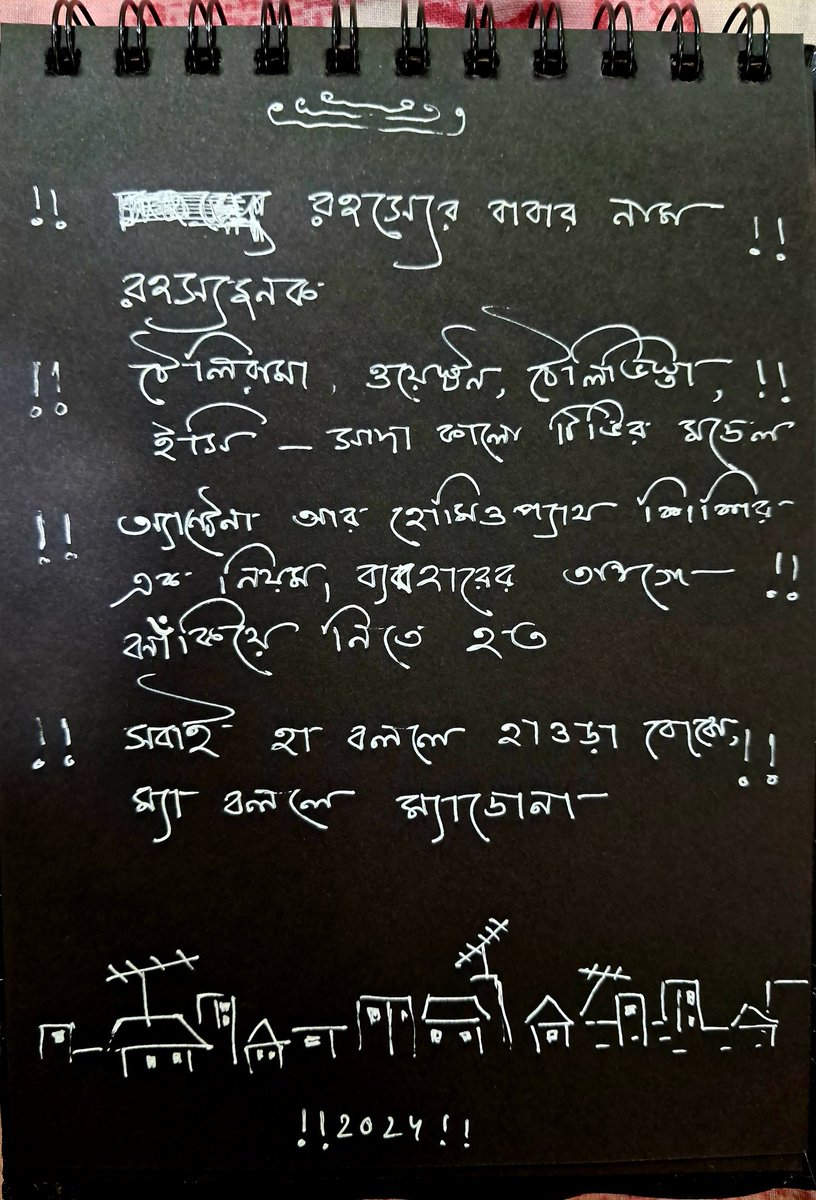 !! রহস্যের বাবার নাম !!
রহস্যজনক
!! টেলিরামা, ওয়েস্টন, টেলিভিস্তা, !!
ইসি – সাদা কালো টিভির মডেল
!! অ্যান্টেনা আর হোমিওপ্যাথ শিশির
এক নিয়ম, ব্যবহারের আগে !!
ঝাঁকিয়ে নিতে হত
!! সবাই হা বললে হাওড়া বোঝে, !!
ম্যা বললে ম্যাডোনা
!!2024!!